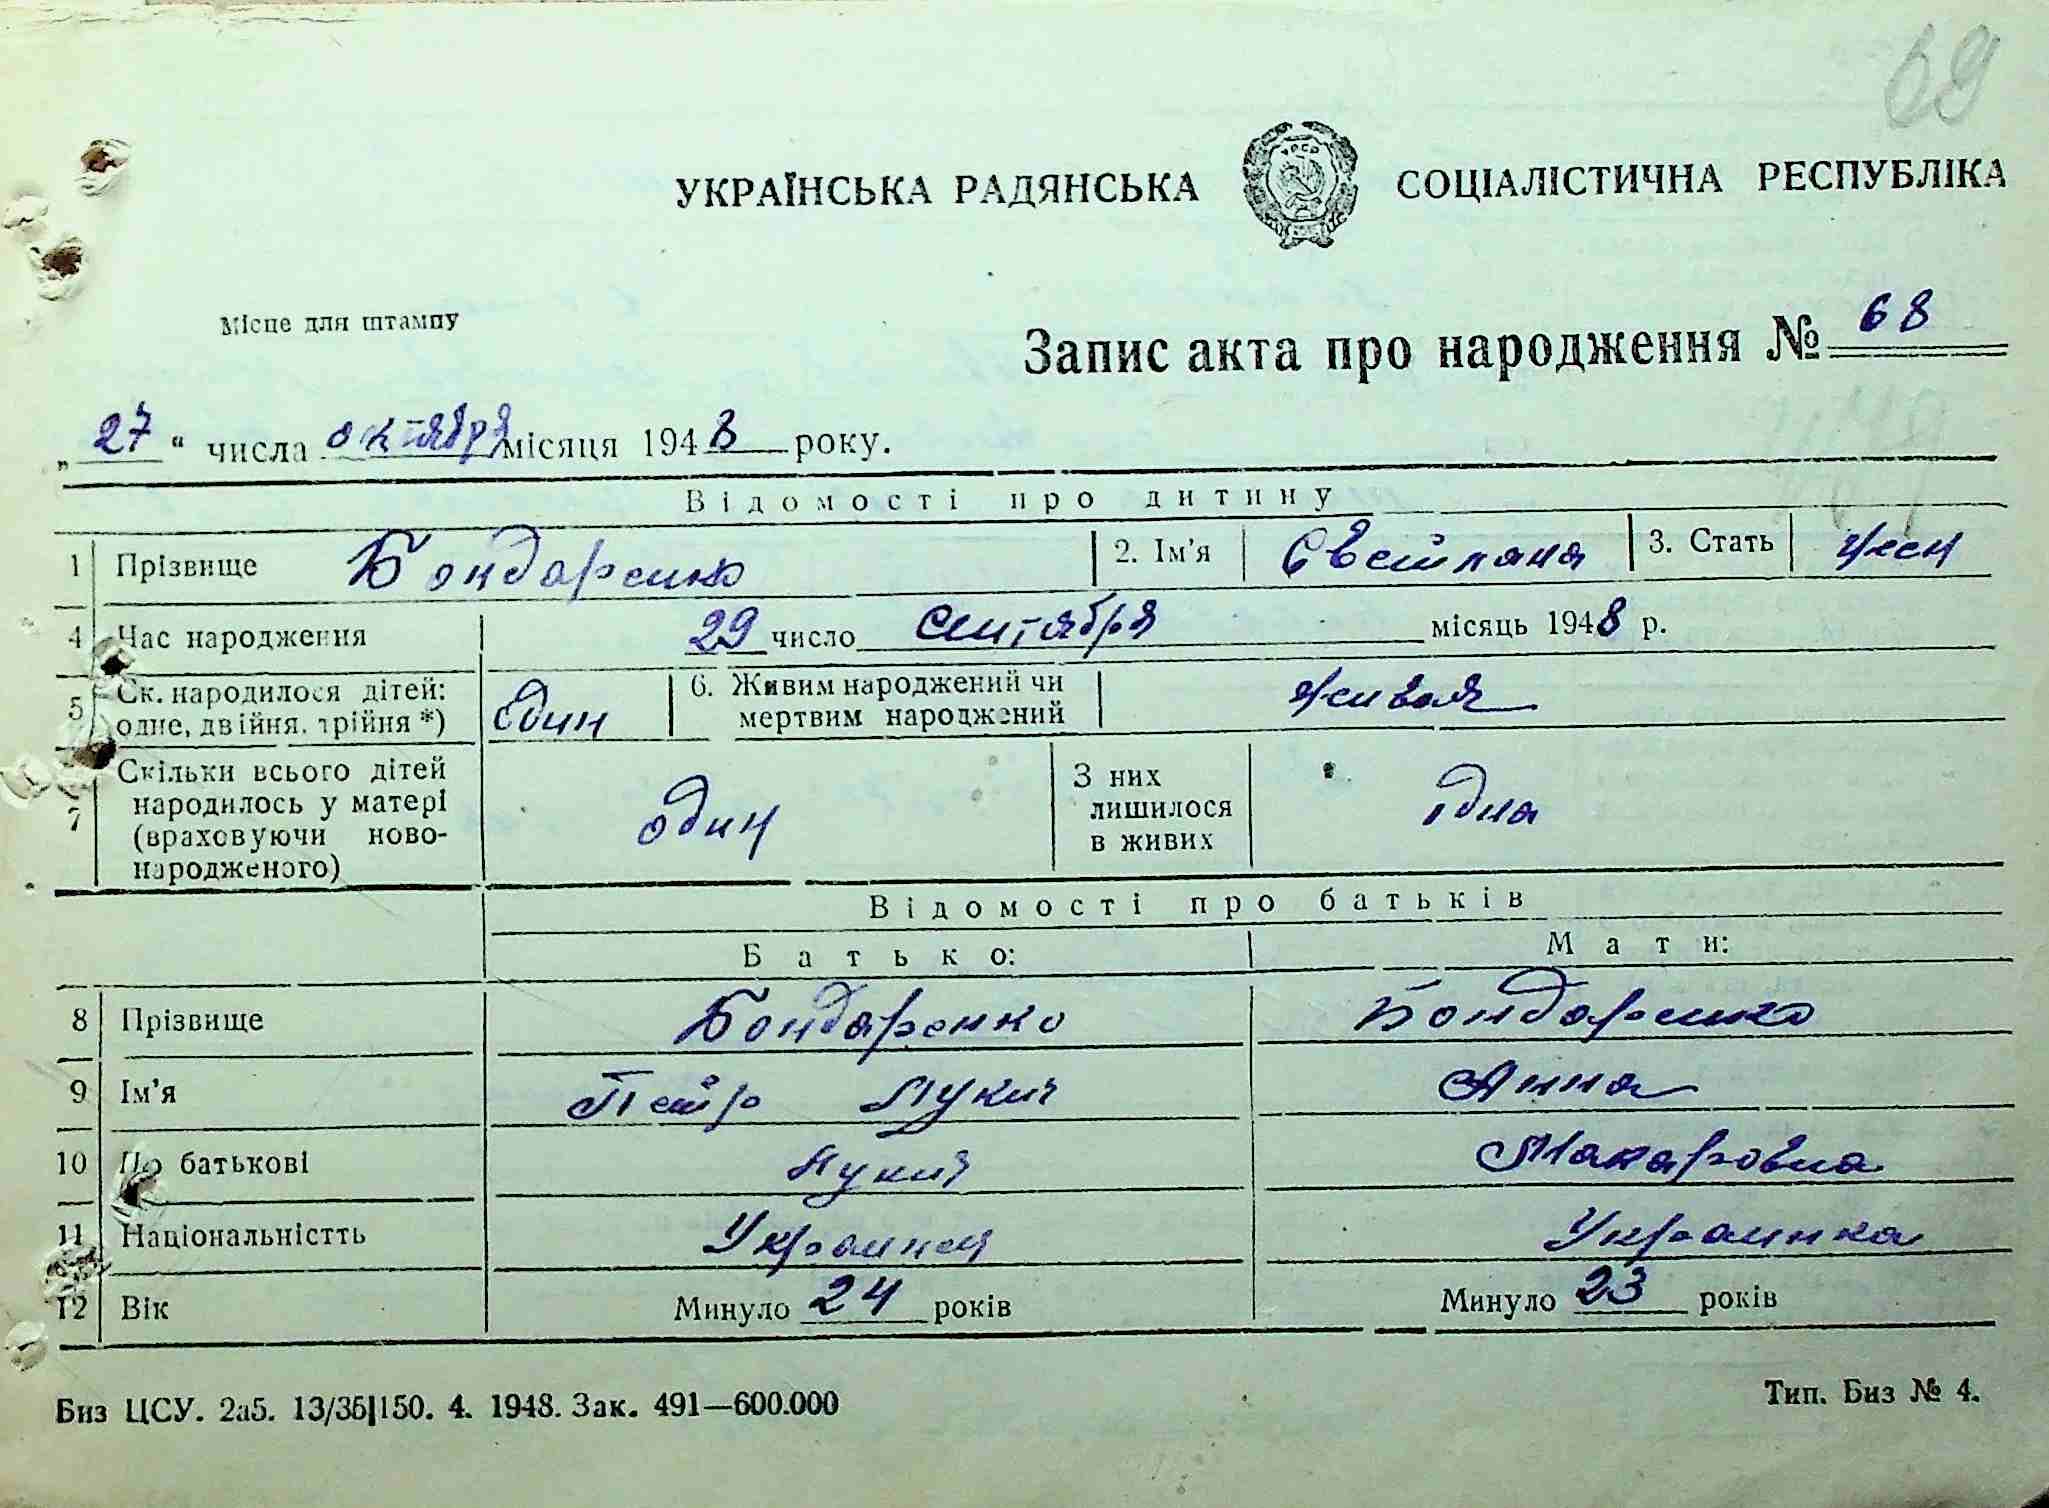 69
УКРАЇНСЬКА РАДЯНСЬКА СОЦІАЛІСТИЧНА РЕСПУБЛІКА
УРСР
Місце для штампу
Запис акта про народження № 68
„27“ числа октября місяця 1948 року.
Відомості про дитину
1 Прізвище Бондаренко 2. Ім'я Светлана 3. Стать жен
4 Час народження 29 число сентября місяць 1948 р.
5 Ск. народилося дітей: одне, двійня, трійня *) один 6. Живим народжений чи мертвим народжений живая
7 Скільки всього дітей народилось у матері (враховуючи ново-народженого) один З них лишилося в живих одна
Відомості про батьків
Батько: Мати:
8 Прізвище Бондаренко Бондаренко
9 Ім'я Петр Лукич Анна
10 По батькові Лукич Макаровна
11 Національністть Украинец Украинка
12 Вік Минуло 24 років Минуло 23 років
Биз ЦСУ. 2а5. 13/36|150. 4. 1948. Зак. 491—600.000 Тип. Биз № 4.